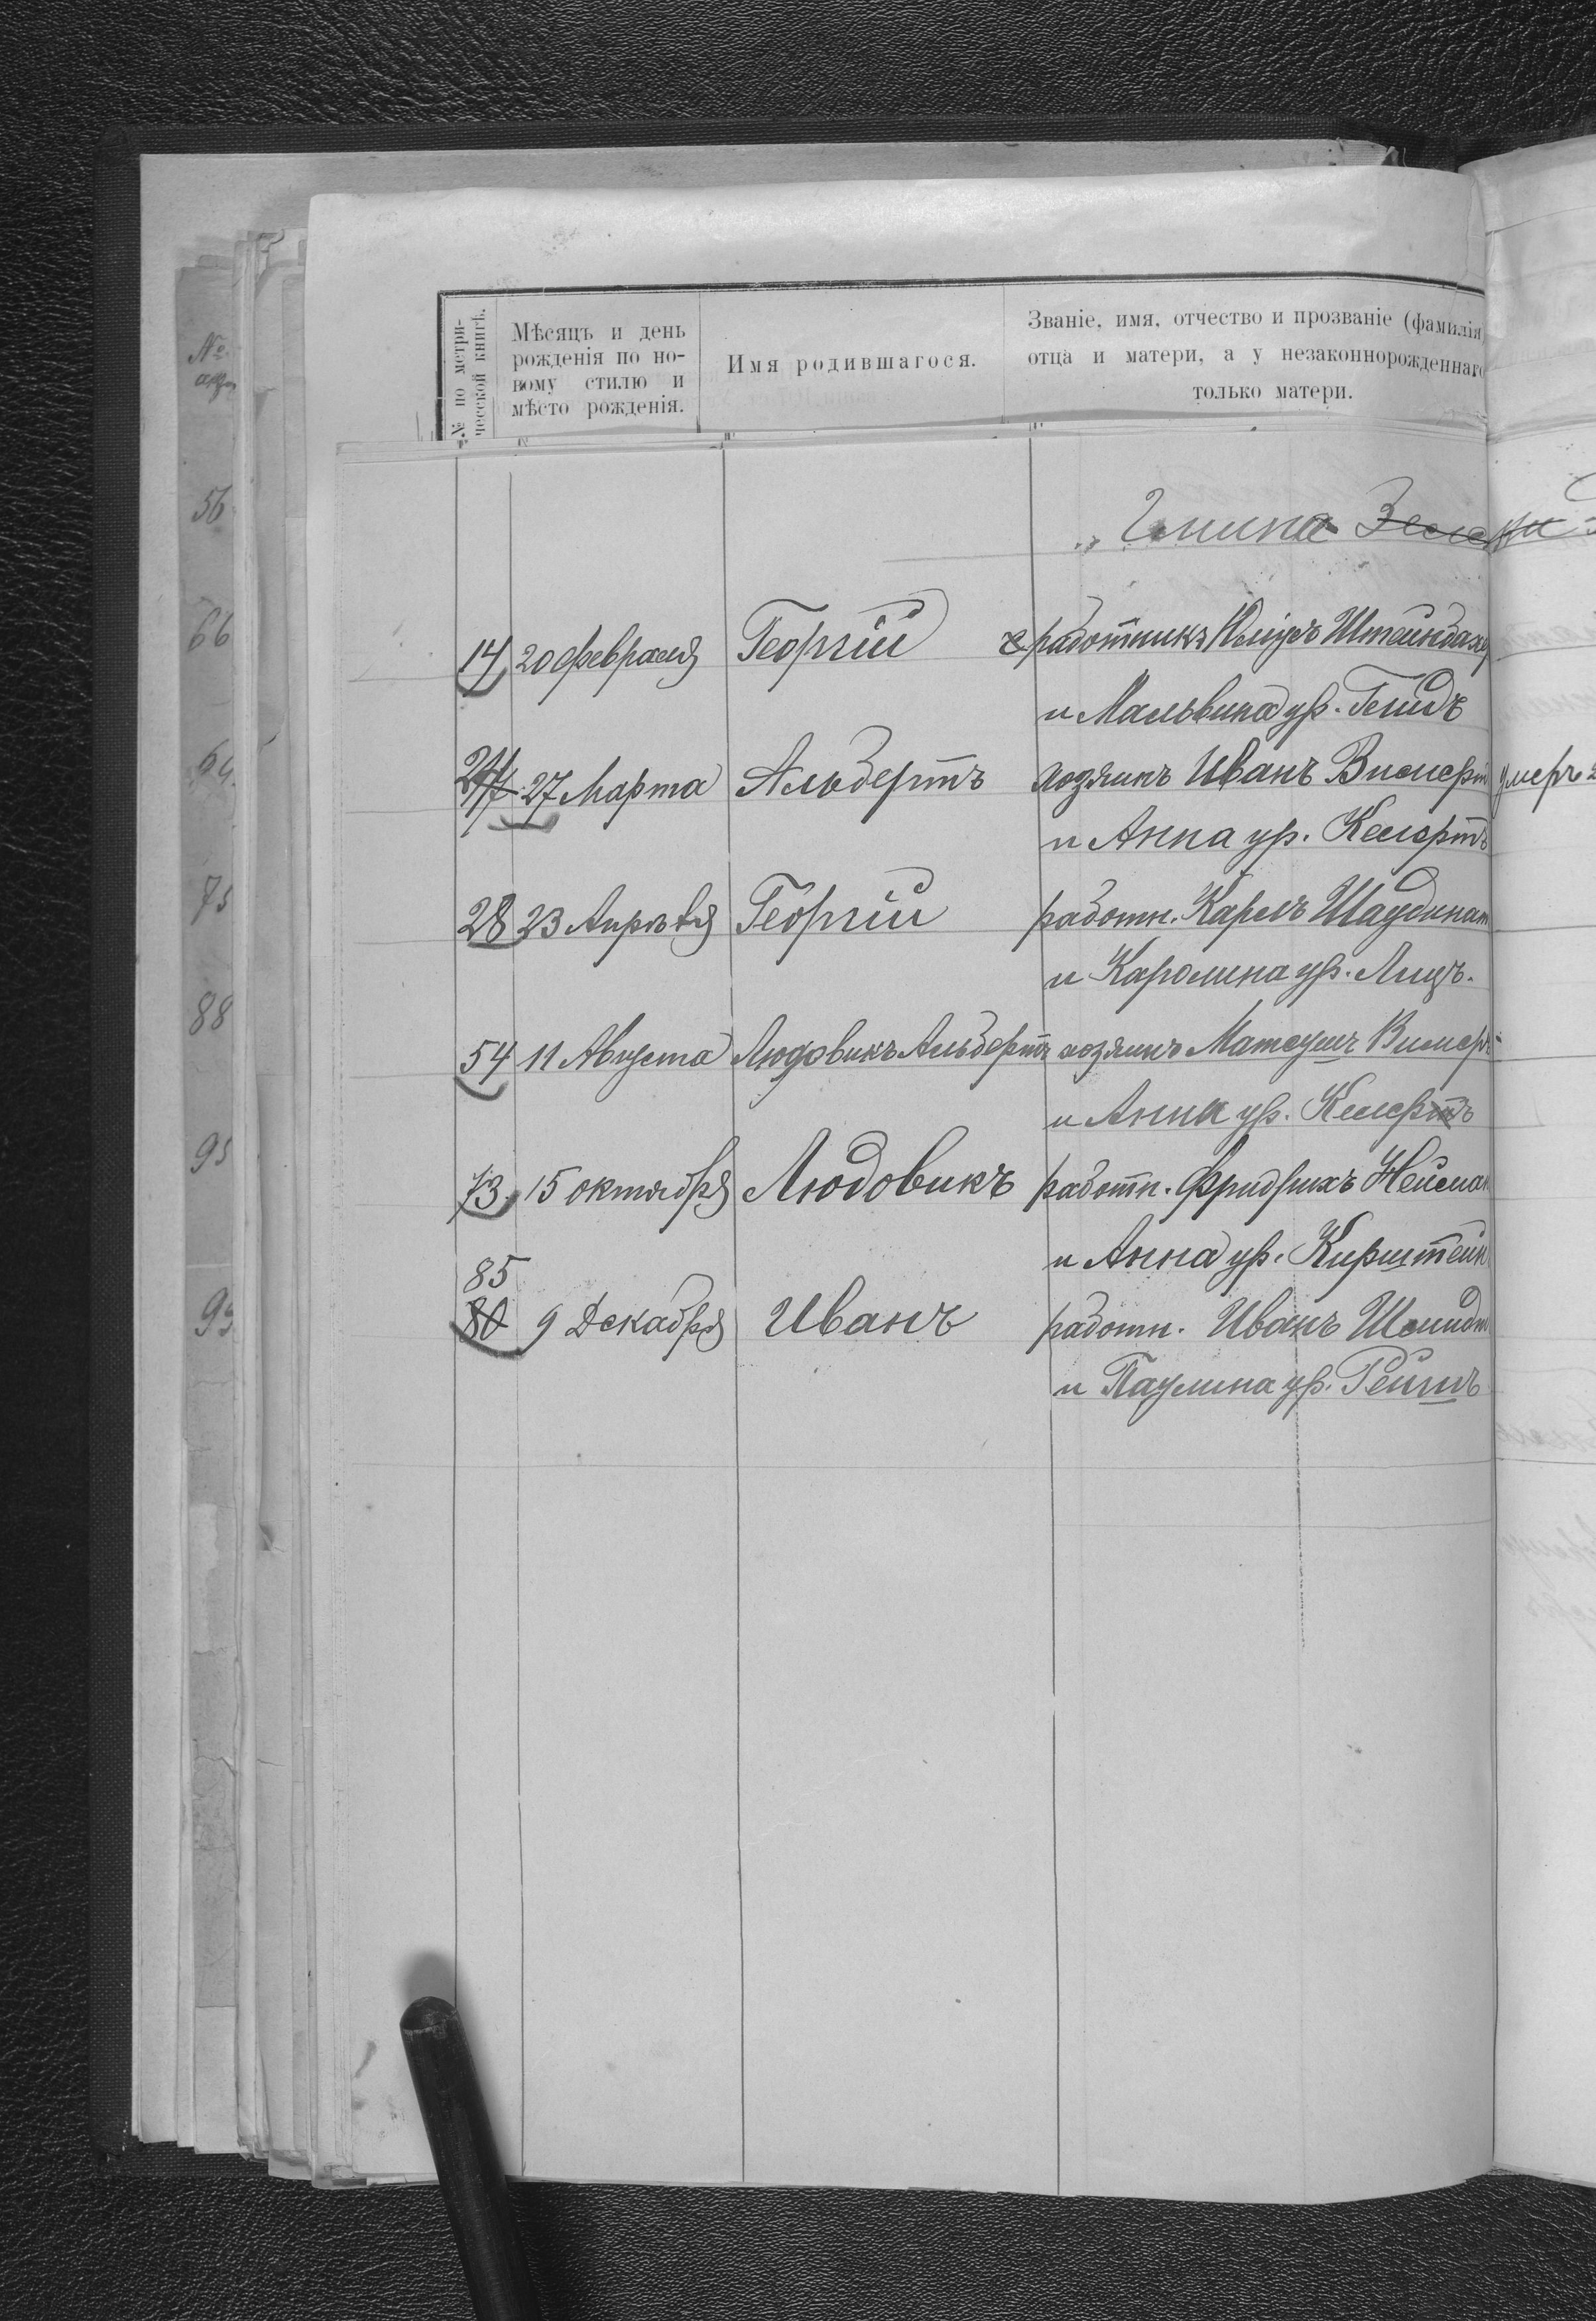 № по метри-
ческой книгѣ.
Мѣсяцъ и день
рожденія по но-
вому стилю и
мѣсто рожденія.
Имя родившагося.
Званіе, имя, отчество и прозваніе (фамилія)
отца и матери, а у незаконнорожденнаго
только матери.
№
56
66
75
88
95
„ Гмина
14 20 февраля Георгій работникъ Штейнбахер
и Мальвина ур.
27 Марта Альбертъ хозяинъ Иванъ умеръ
и Анна ур.
28 23 Апрѣля Георгій работн. Карлъ Шаудинат
и Каролина ур.
54 11 Августа Людовикъ Альбертъ хозяинъ Матеушъ
и Анна ур.
73 15 октября Людовикъ работн. Фридрихъ Нейман
и Анна ур. Кирштейн
85
80 9 Декабря Иванъ работн. Иванъ Шмидт
и Паулина ур. Рейшъ